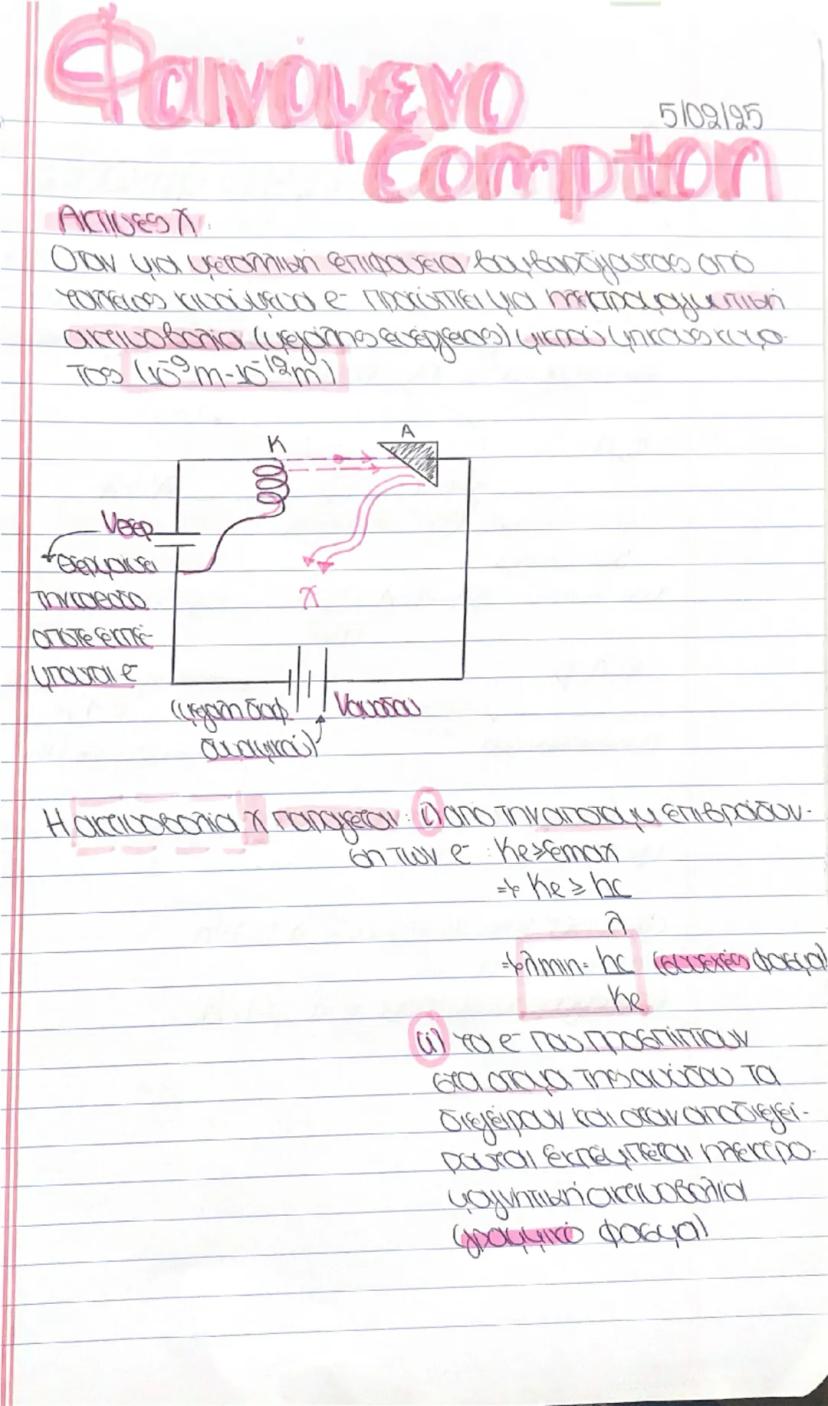 Φαινόμενο
5/02/25
Compton
Ακτίνες Χ:
Όταν μια μεταλλική επιφάνεια βομβαρδίζεται από
ταχέως κινούμενα e⁻ προκύπτει μια ηλεκτρομαγνητική
ακτινοβολία (μεγάλης ενέργειας) μικρού μήκους κύμα-
τος (10⁻⁹m-10⁻¹²m)
K
A
Vθερ
θερμαίνει
την κάθοδο
οπότε εκπέ-
μπονται e⁻
X
(μεγάλη διαφ.
δυναμικού)
Vανόδου
Η ακτινοβολία Χ παράγεται: i) από την απότομη επιβράδυν-
ση των e⁻: Ke≥Emax
⇒ Ke ≥ hc
λ
⇒ λmin = hc (συνεχές φάσμα)
Ke
ii) τα e⁻ που προσπίπτουν
στα άτομα της ανόδου τα
διεγείρουν και όταν αποδιεγεί-
ρονται εκπέμπεται ηλεκτρο-
μαγνητική ακτινοβολία
(γραμμικό φάσμα)